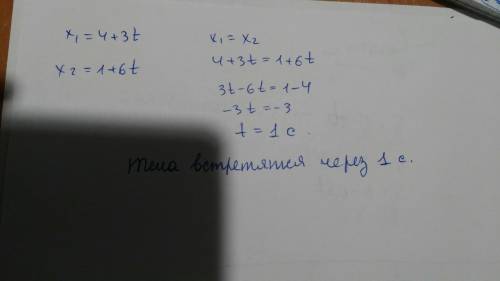 x₁ = 4 + 3t
x₂ = 1 + 6t
x₁ = x₂
4 + 3t = 1 + 6t
3t - 6t = 1 - 4
-3t = -3
t = 1 с.
Тела встретятся через 1 с.